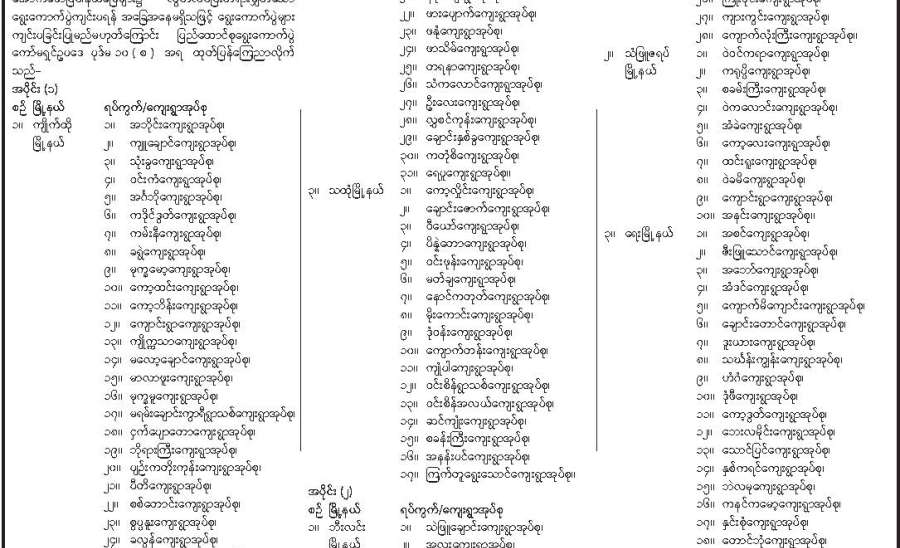 ရွေးကောက်ပွဲကျင်းပရန် အခြေအနေမရှိသဖြင့် ရွေးကောက်ပွဲများ
ကျင်းပခြင်းပြုမည်မဟုတ်ကြောင်း ပြည်ထောင်စုရွေးကောက်ပွဲ
ကော်မရှင်ဥပဒေ ပုဒ်မ ၁၀ ( စ ) အရ ထုတ်ပြန်ကြေညာလိုက်
သည်–
အပိုင်း (၁)
စဉ် မြို့နယ် ရပ်ကွက်/ကျေးရွာအုပ်စု
၁။ ကျိုက်ထို
မြို့နယ်
၁။ အဘိုင်းကျေးရွာအုပ်စု၊
၂။ ကျူချောင်ကျေးရွာအုပ်စု၊
၃။ သုံးခွကျေးရွာအုပ်စု၊
၄။ ဝင်းကံကျေးရွာအုပ်စု၊
၅။ အင်္ဂဘိုကျေးရွာအုပ်စု၊
၆။ ကဒိုင်ဒွတ်ကျေးရွာအုပ်စု၊
၇။ ကမ်းနီကျေးရွာအုပ်စု၊
၈။ ခရွဲကျေးရွာအုပ်စု၊
၉။ မုက္ခမော့ကျေးရွာအုပ်စု၊
၁၀။ ကော့ထင်းကျေးရွာအုပ်စု၊
၁၁။ ကော့ဘိန်းကျေးရွာအုပ်စု၊
၁၂။ ကျောင်းရွာကျေးရွာအုပ်စု၊
၁၃။ ကျိုက္ကသာကျေးရွာအုပ်စု၊
၁၄။ မလော့ချောင်ကျေးရွာအုပ်စု၊
၁၅။ မာလာဖူးကျေးရွာအုပ်စု၊
၁၆။ မုက္ခမူကျေးရွာအုပ်စု၊
၁၇။ မရမ်းချောင်းကွာရီရွာသစ်ကျေးရွာအုပ်စု၊
၁၈။ ငှက်ပျောတောကျေးရွာအုပ်စု၊
၁၉။ ဘိုရားကြီးကျေးရွာအုပ်စု၊
၂၀။ ပျဉ်းကတိုးကုန်းကျေးရွာအုပ်စု၊
၂၁။ ပီတိကျေးရွာအုပ်စု၊
၂၂။ စစ်တောင်းကျေးရွာအုပ်စု၊
၂၃။ စွပ္ပနူးကျေးရွာအုပ်စု၊
၂၄။ ခလွန်ကျေးရွာအုပ်စု၊
၂၂။ ဖားပျောက်ကျေးရွာအုပ်စု၊
၂၃။ ဖနုံကျေးရွာအုပ်စု၊
၂၄။ ဖာသိမ်ကျေးရွာအုပ်စု၊
၂၅။ တရနာကျေးရွာအုပ်စု၊
၂၆။ သံကလောင်ကျေးရွာအုပ်စု၊
၂၇။ ဦးလေးကျေးရွာအုပ်စု၊
၂၈။ လွှစင်ကုန်းကျေးရွာအုပ်စု၊
၂၉။ ချောင်းနှစ်ခွကျေးရွာအုပ်စု၊
၃၀။ ကတုံစိကျေးရွာအုပ်စု၊
၃၁။ ရေပူကျေးရွာအုပ်စု။
၃။ သထုံမြို့နယ် ၁။ ကော့လှိုင်းကျေးရွာအုပ်စု၊
၂။ ချောင်းဇောက်ကျေးရွာအုပ်စု၊
၃။ ဝီယော်ကျေးရွာအုပ်စု၊
၄။ ပိန္နဲတောကျေးရွာအုပ်စု၊
၅။ ဝင်းဖုန်းကျေးရွာအုပ်စု၊
၆။ မတ်ချကျေးရွာအုပ်စု၊
၇။ နောင်ကတုတ်ကျေးရွာအုပ်စု၊
၈။ မိုးကောင်းကျေးရွာအုပ်စု၊
၉။ ဒုံဝန်းကျေးရွာအုပ်စု၊
၁၀။ ကျောက်တန်းကျေးရွာအုပ်စု၊
၁၁။ ကျုံပါကျေးရွာအုပ်စု၊
၁၂။ ဝင်းစိန်ရွာသစ်ကျေးရွာအုပ်စု၊
၁၃။ ဝင်းစိန်အလယ်ကျေးရွာအုပ်စု၊
၁၄။ ဆင်ကျုံးကျေးရွာအုပ်စု၊
၁၅။ စခန်းကြီးကျေးရွာအုပ်စု၊
၁၆။ အနန်းပင်ကျေးရွာအုပ်စု၊
၁၇။ ကြက်တူရွေးသောင်ကျေးရွာအုပ်စု။
အပိုင်း (၂)
စဉ် မြို့နယ် ရပ်ကွက်/ကျေးရွာအုပ်စု
၁။ ဘီးလင်း
မြို့နယ်
၁။ သဲဖြူချောင်းကျေးရွာအုပ်စု၊
၂။ အလူးကျေးရွာအုပ်စု၊
၂၇။ ကျားကွင်းကျေးရွာအုပ်စု၊
၂၈။ ကျောက်လုံးကြီးကျေးရွာအုပ်စု။
၂။ သံဖြူဇရပ်
မြို့နယ်
၁။ ဝဲဝင်ကရာကျေးရွာအုပ်စု၊
၂။ ကရုပ္ပိကျေးရွာအုပ်စု၊
၃။ စခမ်းကြီးကျေးရွာအုပ်စု၊
၄။ ဝဲကလောင်းကျေးရွာအုပ်စု၊
၅။ အံခဲကျေးရွာအုပ်စု၊
၆။ ကော့လေးကျေးရွာအုပ်စု၊
၇။ ထင်းရူးကျေးရွာအုပ်စု၊
၈။ ဝဲခမိကျေးရွာအုပ်စု၊
၉။ ကျောင်းရွာကျေးရွာအုပ်စု၊
၁၀။ အနင်းကျေးရွာအုပ်စု။
၃။ ရေးမြို့နယ် ၁။ အစင်ကျေးရွာအုပ်စု၊
၂။ ဇီးဖြူသောင်ကျေးရွာအုပ်စု၊
၃။ အဘော်ကျေးရွာအုပ်စု၊
၄။ အံဒင်ကျေးရွာအုပ်စု၊
၅။ ကျောက်မိကျောင်းကျေးရွာအုပ်စု၊
၆။ ချောင်းတောင်ကျေးရွာအုပ်စု၊
၇။ ဒူးယားကျေးရွာအုပ်စု၊
၈။ သင်္ဃန်းကျွန်းကျေးရွာအုပ်စု၊
၉။ ဟံဂံကျေးရွာအုပ်စု၊
၁၀။ ဒုံဖီကျေးရွာအုပ်စု၊
၁၁။ ကော့ဒွတ်ကျေးရွာအုပ်စု၊
၁၂။ ဘေးလမိုင်းကျေးရွာအုပ်စု၊
၁၃။ သောင်ပြင်ကျေးရွာအုပ်စု၊
၁၄။ နှစ်ကရင်ကျေးရွာအုပ်စု၊
၁၅။ ဘဲလမုကျေးရွာအုပ်စု၊
၁၆။ ကနင်ကမော့ကျေးရွာအုပ်စု၊
၁၇။ နှင်းစုံကျေးရွာအုပ်စု၊
၁၈။ တောင်ဘုံကျေးရွာအုပ်စု၊